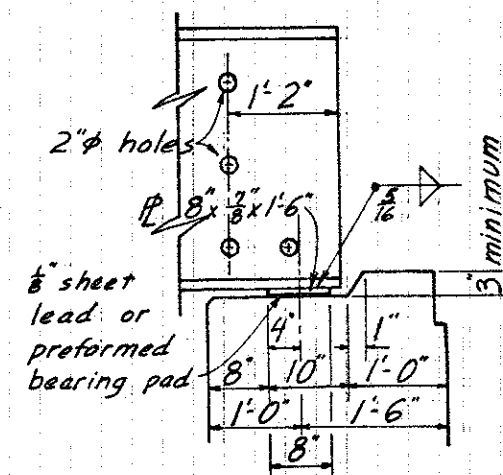 1'-2"
2"φ holes
℄ 8" x 7/8" x 1'-6"
5/16
3" minimum
1/8" sheet
lead or
preformed
bearing pad
4"
1"
8"
10"
1'-0"
1'-0"
1'-6"
8"